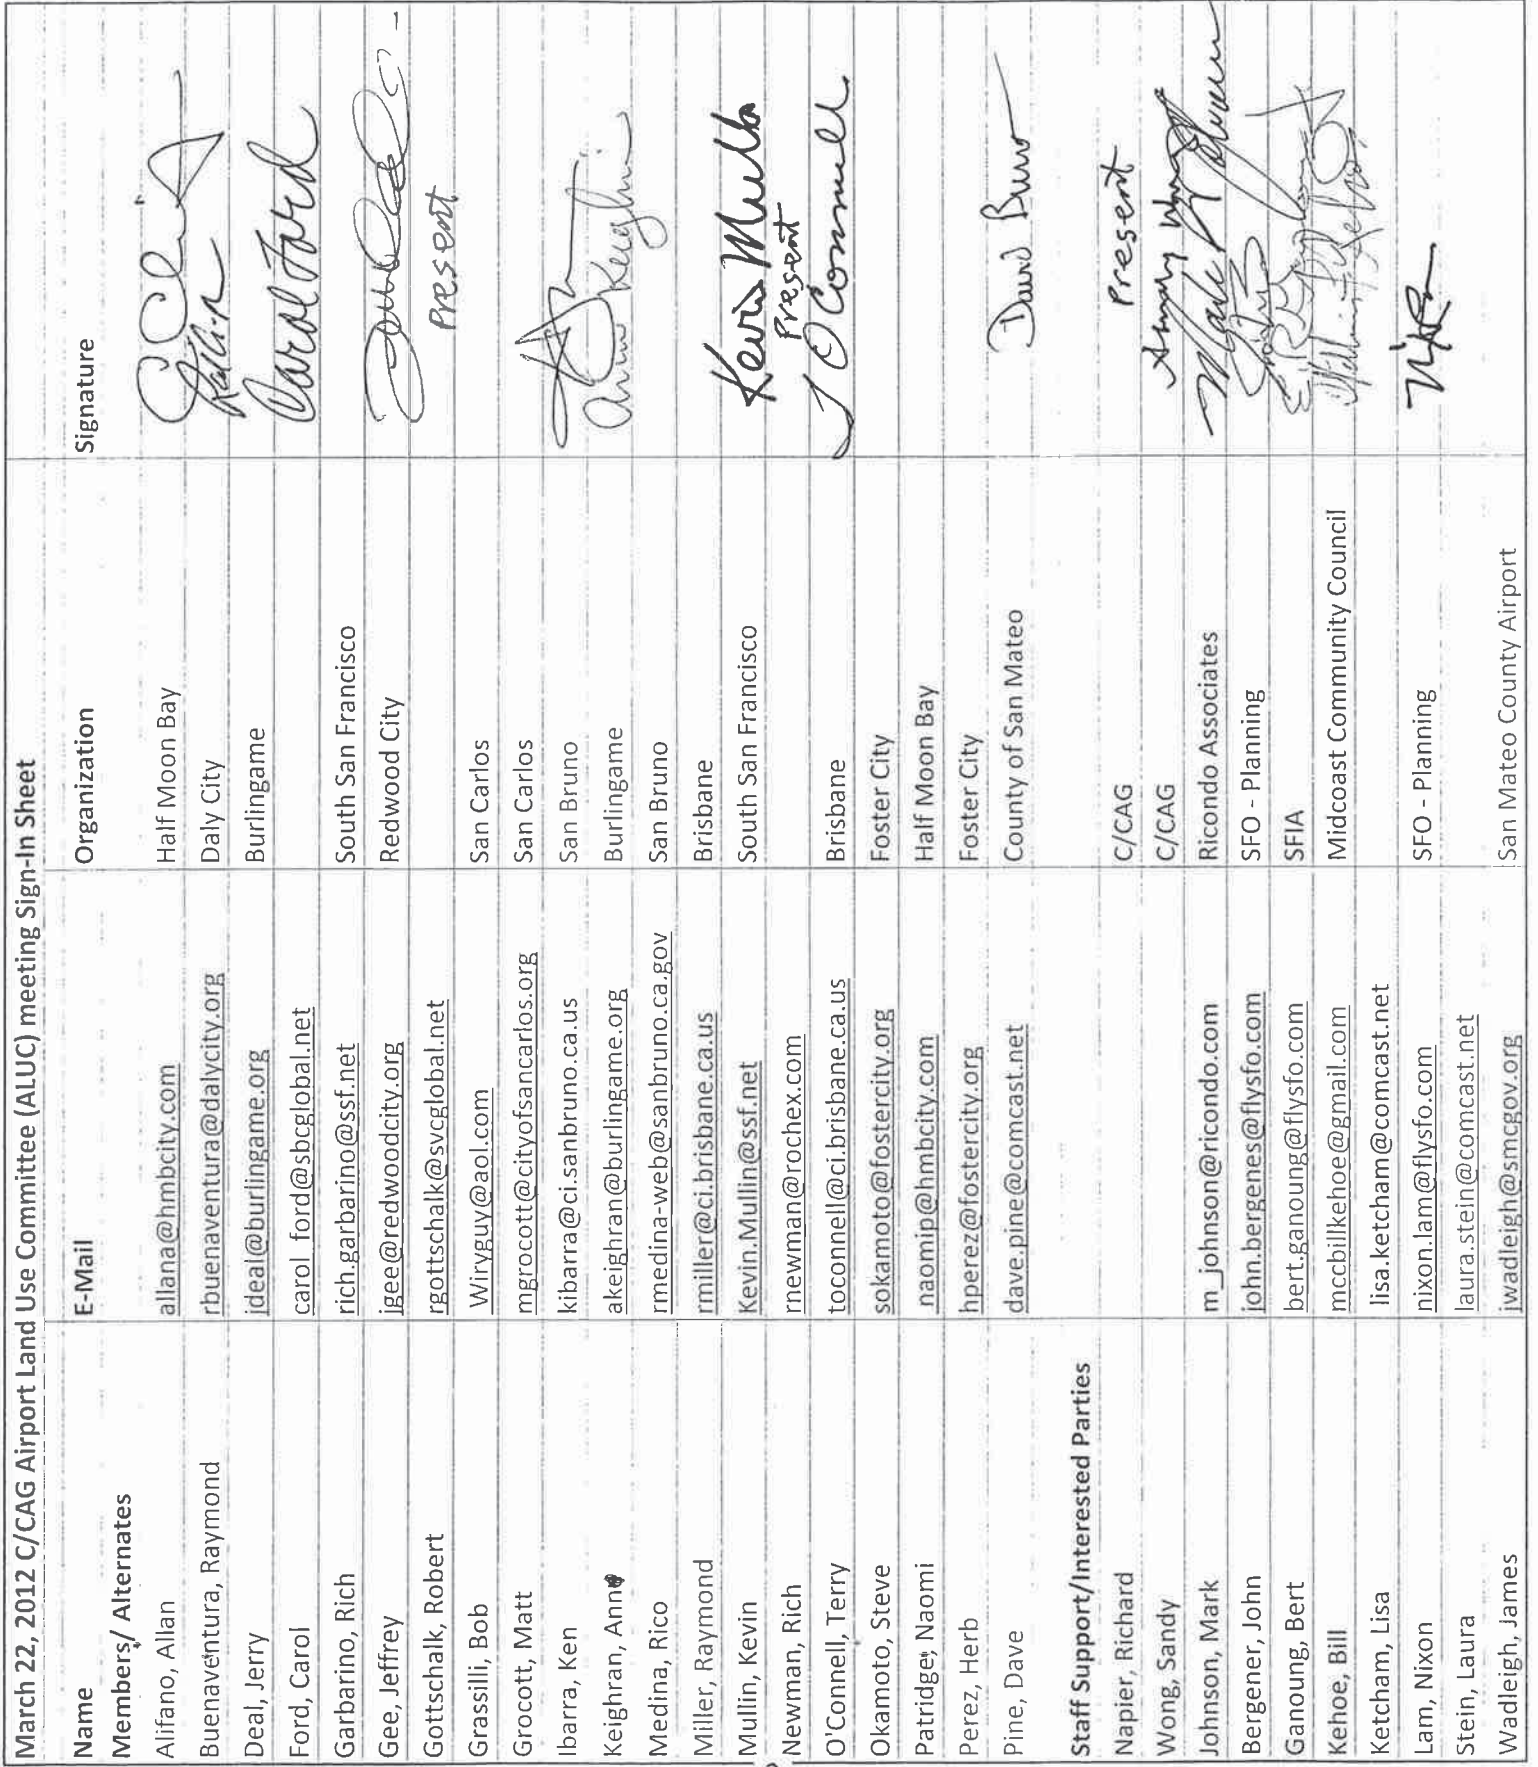 March 22, 2012 C/CAG Airport Land Use Committee (ALUC) meeting Sign-In Sheet
Name E-Mail Organization Signature
Members/ Alternates
Alifano, Allan allana@hmbcity.com Half Moon Bay
Buenaventura, Raymond rbuenaventura@dalycity.org Daly City
Deal, Jerry jdeal@burlingame.org Burlingame
Ford, Carol carol_ford@sbcglobal.net Carol Ford
Garbarino, Rich rich.garbarino@ssf.net South San Francisco
Gee, Jeffrey jgee@redwoodcity.org Redwood City
Gottschalk, Robert rgottschalk@svcglobal.net Present
Grassilli, Bob Wiryguy@aol.com San Carlos
Grocott, Matt mgrocott@cityofsancarlos.org San Carlos
Ibarra, Ken kibarra@ci.sanbruno.ca.us San Bruno
Keighran, Ann akeighran@burlingame.org Burlingame Ann Keighran
Medina, Rico rmedina-web@sanbruno.ca.gov San Bruno
Miller, Raymond rmiller@ci.brisbane.ca.us Brisbane
Mullin, Kevin Kevin.Mullin@ssf.net South San Francisco Kevin Mullin
Newman, Rich rnewman@rochex.com Present
O'Connell, Terry toconnell@ci.brisbane.ca.us Brisbane T O Connell
Okamoto, Steve sokamoto@fostercity.org Foster City
Patridge, Naomi naomip@hmbcity.com Half Moon Bay
Perez, Herb hperez@fostercity.org Foster City
Pine, Dave dave.pine@comcast.net County of San Mateo David Burro
Staff Support/Interested Parties
Napier, Richard C/CAG Present
Wong, Sandy C/CAG
Johnson, Mark m_johnson@ricondo.com Ricondo Associates Mark Johnson
Bergener, John john.bergenes@flysfo.com SFO - Planning
Ganoung, Bert bert.ganoung@flysfo.com SFIA
Kehoe, Bill mccbillkehoe@gmail.com Midcoast Community Council
Ketcham, Lisa lisa.ketcham@comcast.net
Lam, Nixon nixon.lam@flysfo.com SFO - Planning
Stein, Laura laura.stein@comcast.net
Wadleigh, James jwadleigh@smcgov.org San Mateo County Airport